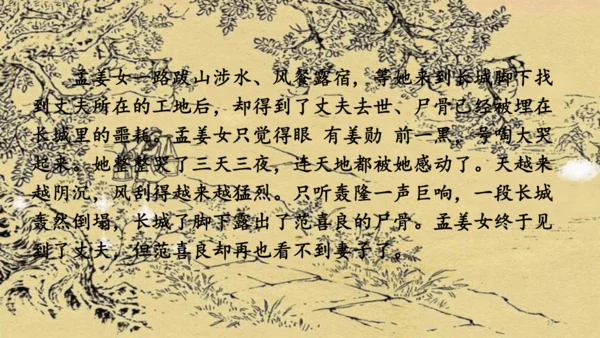 孟姜女一路跋山涉水、风餐露宿，等她来到长城脚下找
到丈夫所在的工地后，却得到了丈夫去世、尸骨已经被埋在
长城里的噩耗。孟姜女只觉得眼 有姜勋 前一黑，号啕大哭
起来。她整整哭了三天三夜，连天地都被她感动了。天越来
越阴沉，风刮得越来越猛烈。只听轰隆一声巨响，一段长城
轰然倒塌，长城了脚下露出了范喜良的尸骨。孟姜女终于见
到了丈夫，但范喜良却再也看不到妻子了。